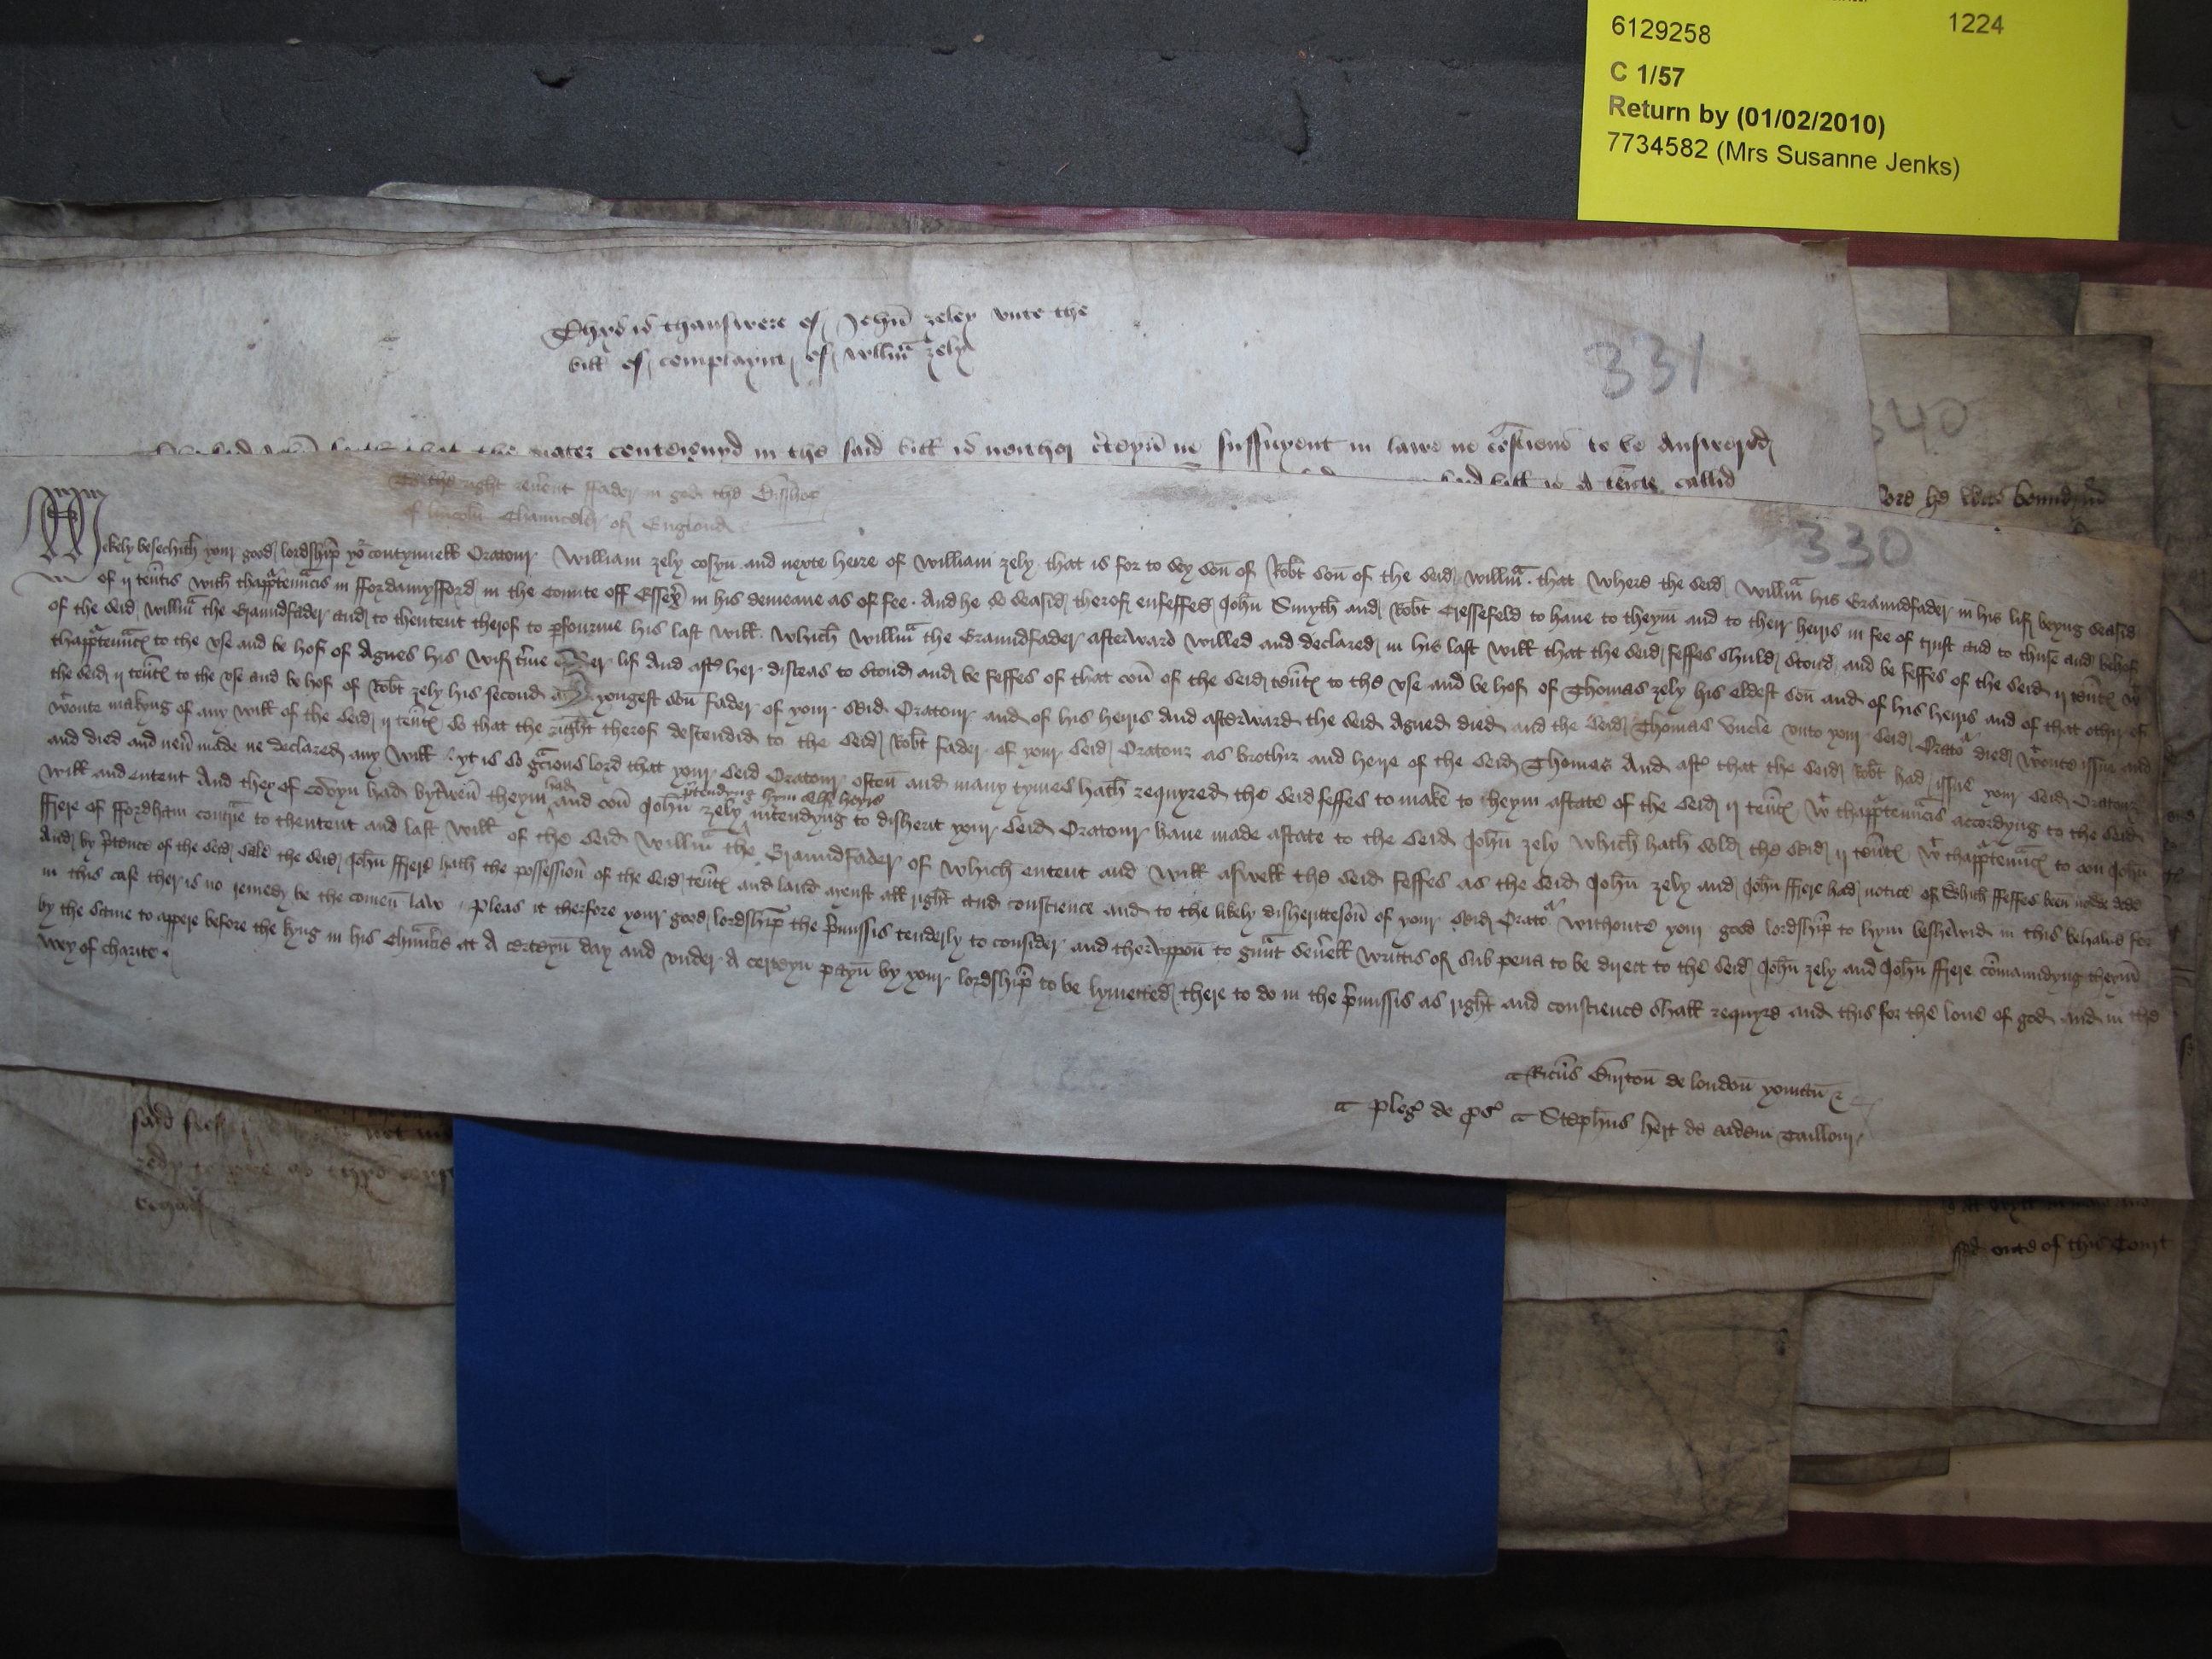 6129258 1224
C 1/57
Return by (01/02/2010)
7734582 (Mrs Susanne Jenks)
Thys is thanswere of John zeley vnto the
bill of complaynt of Willm zely
331
340
mater conteignyd in the said bill is nouther certeyn ne suffisyent in lawe ne to be Answeryd
said bill is A tente callid
lord he was
To the right reuent ffader in god the Bisshop
of lincoln Chaunceler of Englond
330
Mekely besechith your good lordship yor contynuell Oratour William zely cosyn and nexte heire of William zely that is for to sey son of Robt son of the seid Willm that where the seid Willm his Graundfader in his lif beyng seasid
of ij tentis with thapptenncis in ffordamyfford in the Counte off Essex in his demeane as of fee. And he so seasid therof enfeffed John Smyth and Robt Cressefeld to haue to theym and to their heyris in fee of trust and to thuse and behof
of the seid Willm the Graundfader and to thentent therof to pfourme his last will. Which Willm the Graundfader afterward willed and declared in his last will that the seid feffes shuld stond and be feffes of the seid ij tentes wt
thapptennces to the vse and be hof of Agnes his wif tme of her lif And aftr her disseas to stond and be feffes of that oon of the seid tentes to the vse and be hof of Thomas zely his eldest son and of his heyris and of that othir of
the seid ij tentes to the vse and be hof of Robt zely his second and yongest son fader of your seid Oratour and of his heyris And afterward the seid Agnes died and the seid Thomas Vncle vnto your seid Orator died wtoute issue and
wtoute makyng of any will of the seid ij tentes so that the right therof descendid to the seid Robt fader of your seid Oratour as brothir and heire of the seid Thomas And aftr that the seid Robt had issue your seid Oratour
and died and neuer made ne declared any will. yt is so gracious lord that your seid Oratour often and many tymes hath requyred the seid feffes to make to theym astate of the seid ij tentes wt thapptenncis accordyng to the seid
will and entent And they of covyn had bytwen theym had and oon John zely ptendyng hym self heyre intendyng to disherit your seid Oratour haue made astate to the seid John zely which hath sold the seid ij tentes wt thapptennces to oon John
ffrere of ffordham contrie to thentent and last will of the seid Willm the Graundfader of which entent and will aswell the seid feffes as the seid John zely and John ffrere had notice of which ffeffes been nowe dede
And by ptence of the seid sale the seid John ffrere hath the possession of the seid tentes and land ayenst all right and conscience and to the likely disheritteson of your seid Orator withoute your good lordship to hym beshewid in this behalue for
in this case ther is no remedy be the comen law. Pleas it therfore your good lordship the pmissis tenderly to consider and theruppon to graunt seuerell writtis of sub pena to be direct to the seid John zely and John ffrere comaundyng theym
by the same to appere before the kyng in his Chauncere at A certeyn day and vnder A certeyn payn by your lordship to be lymetted there to do in the pmissis as right and conscience shall requyre and this for the loue of god and in the
wey of charite.
Ricus Burton de london yoman
pleg de ps Stephus hert de eadem Taillour
said